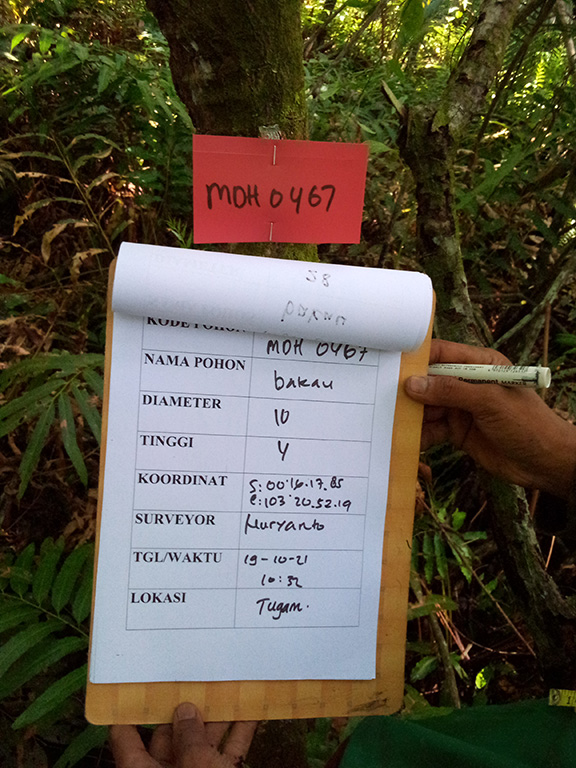 MDH 0467
KODE POHON MDH 0467
NAMA POHON bakau
DIAMETER 10
TINGGI 4
KOORDINAT S:00°16.17.85
E:103°20.52.19
SURVEYOR Nuryanto
TGL/WAKTU 19-10-21
10:32
LOKASI Tugam.
Permanent MARKER